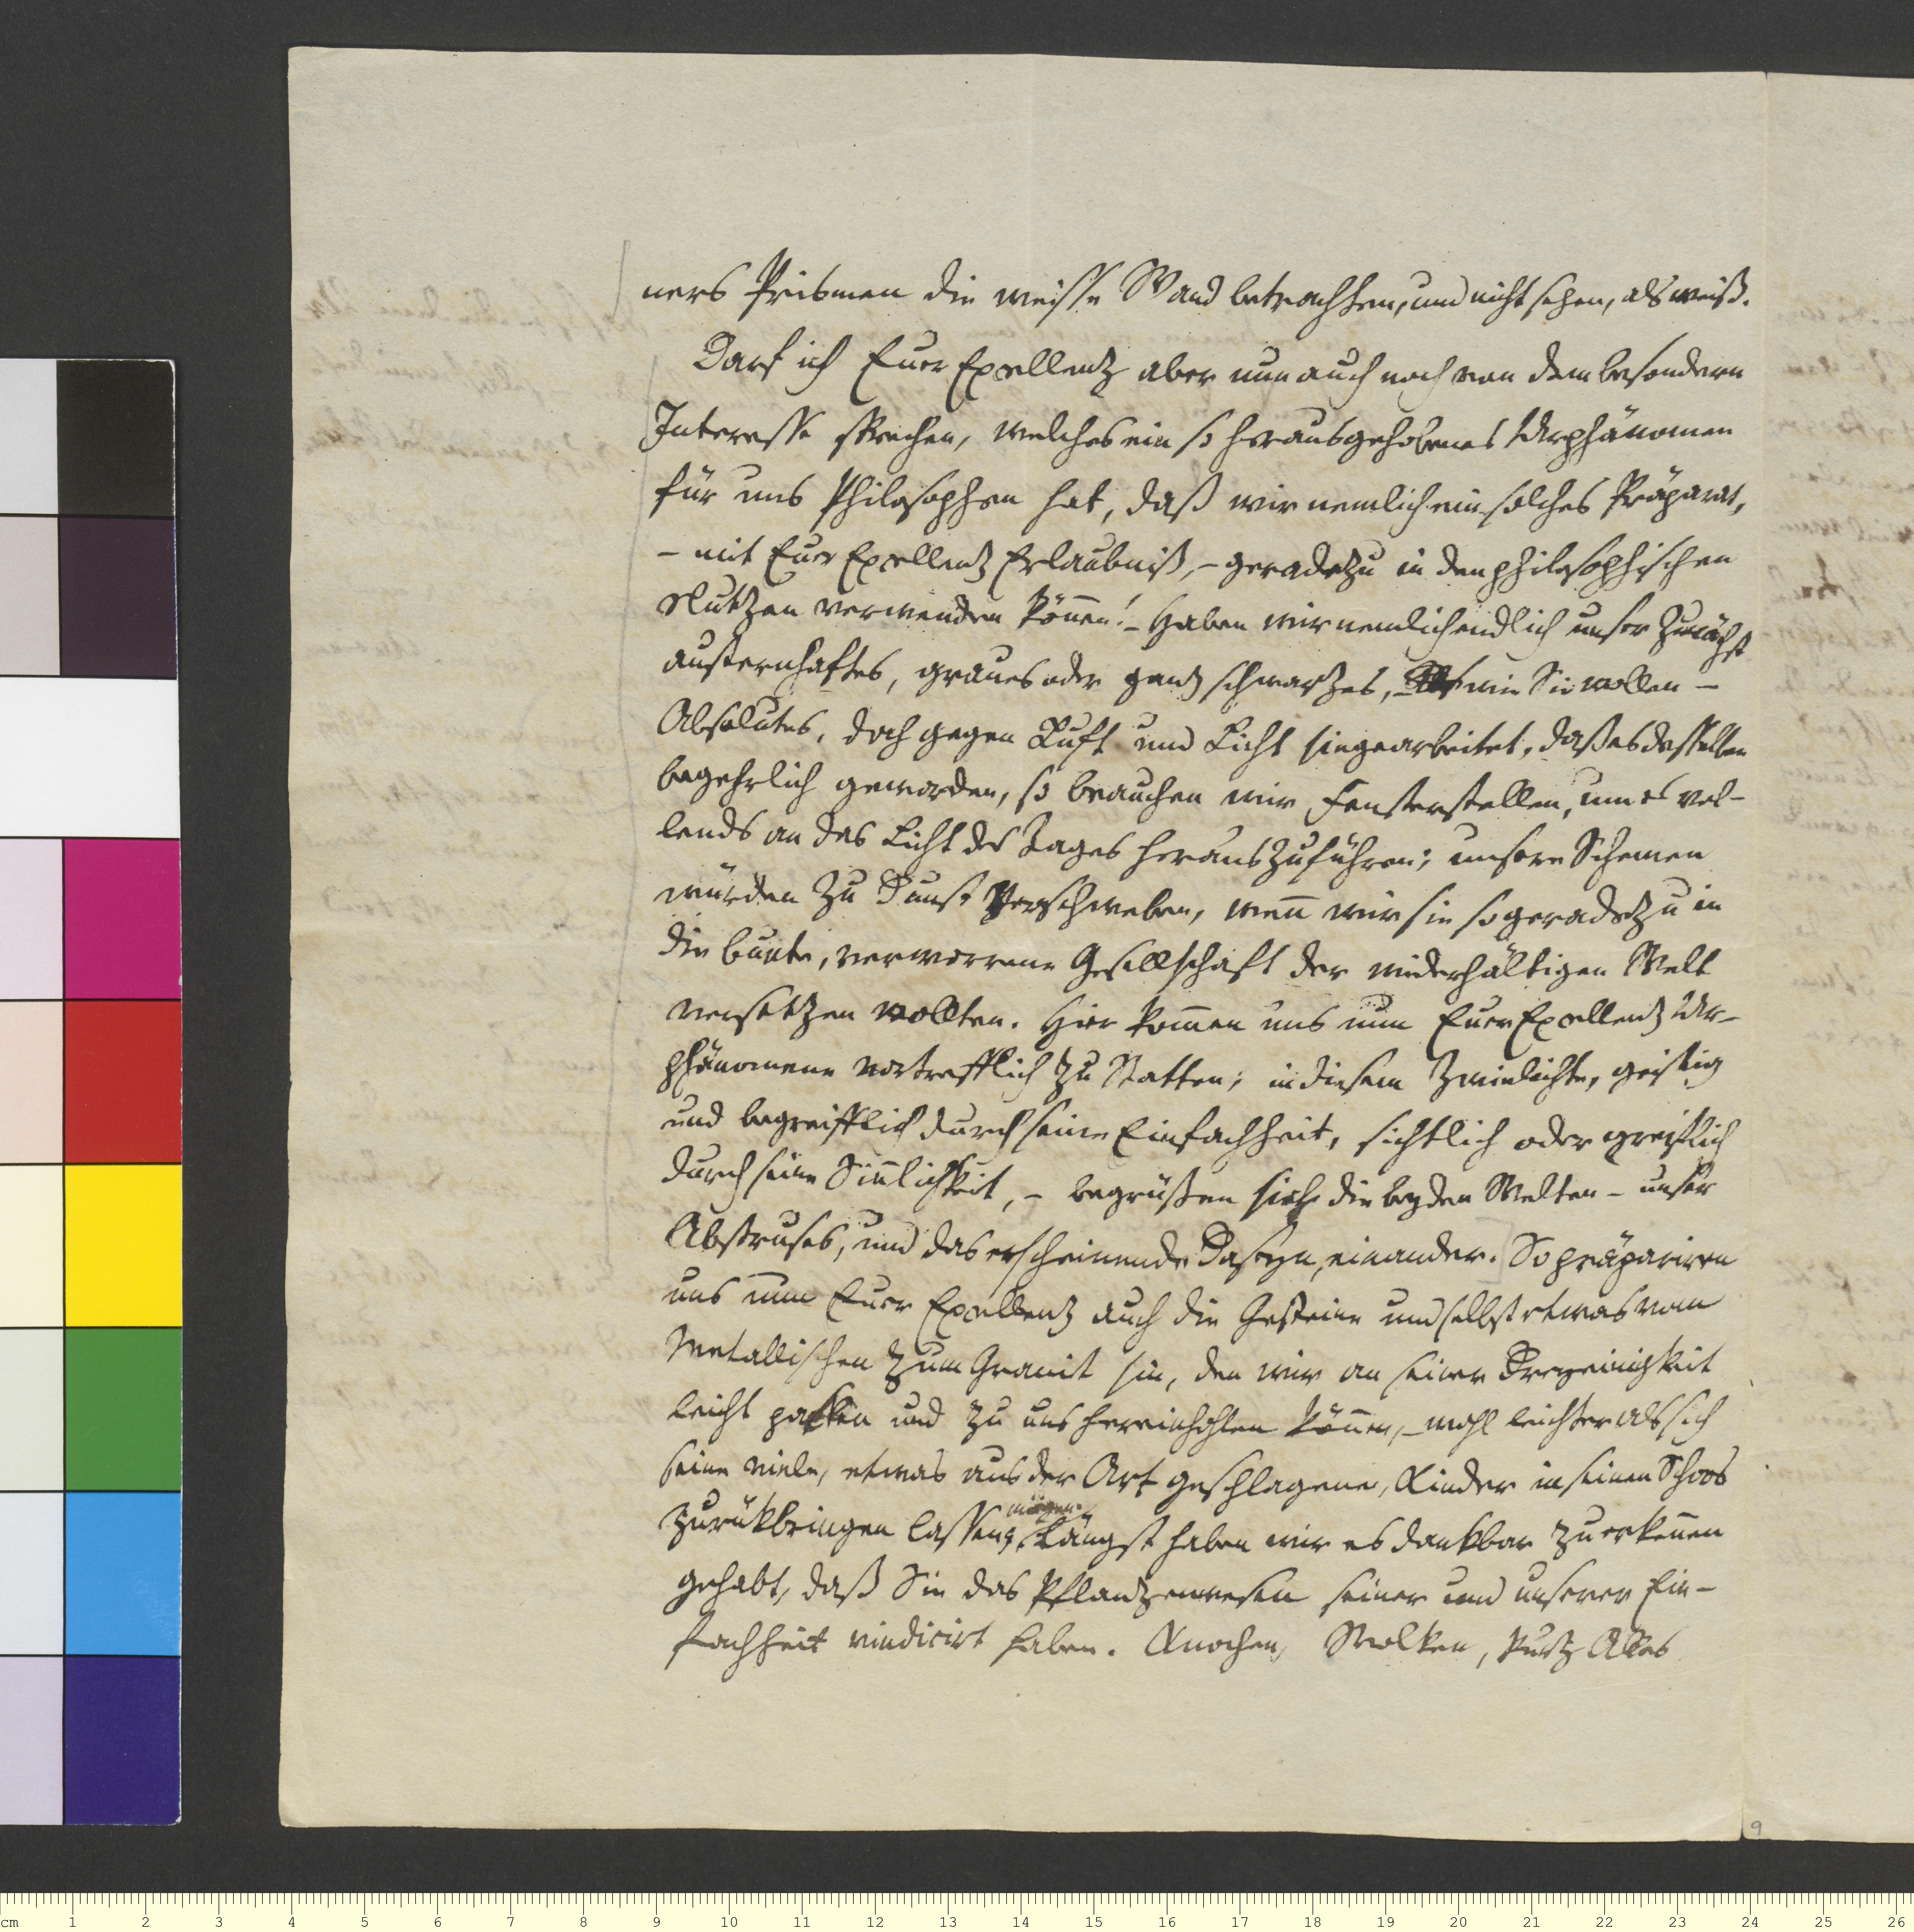 ners Prismen die weisse Wand betrachten, und nicht sehen, als weiß.
Darf ich Euer Exellentz aber nun auch noch von dem besondern
Interesse sprechen, welches ein so herausgehobenes Urphänomen
für uns Philosophen hat, daß wir nemlich ein solches Präparat,
– mit Euer Exellentz Erlaubniß, – geradezu in den philosophischen
Nutzen verwenden können! – Haben wir nemlich endlich unser zunächst
austernhaftes, graues oder gantz schwartzes, – wie Sie wollen –
Absolutes, doch gegen Luft und Licht hingearbeitet, daß es desselben
begehrlich geworden, so brauchen wir Fensterstellen, um es vol-
lends an das Licht des Tages herauszuführen; unsere Schemen
würden zu Dunst verschweben, wenn wir sie so geradezu in
die bunte, verworrene Gesellschaft der widerhältigen Welt
versetzen wollten. Hier kommen uns nun Euer Exellentz Ur-
phänomene vortrefflich zu Statten; in diesem Zwielichte, geistig
und begreifflich durch seine Einfachheit, sichtlich oder greiflich
durch seine Sinnlichkeit, – begrüßen sich die beyden Welten – unser
Abstruses, und das erscheinende Daseyn, einander. So präpariren
uns nun Euer Exellentz auch die Gesteine und selbst etwas vom
Metallischen zum Granit hin, den wir an seiner Dreyeinigkeit
leicht packen und zu uns hereinhohlen können, – wohl leichter als sich
seine viele, etwas aus der Art geschlagene, Kinder in seinen Schoos
mögen.
zurükbringen lassen Längst haben wir es dankbar zu erkennen
gehabt, daß Sie das Pflantzenwesen seiner und unserer Ein-
fachheit vindicirt haben. Knochen, Wolken, kurtz Alles
9
cm 1 2 3 4 5 6 7 8 9 10 11 12 13 14 15 16 17 18 19 20 21 22 23 24 25 26